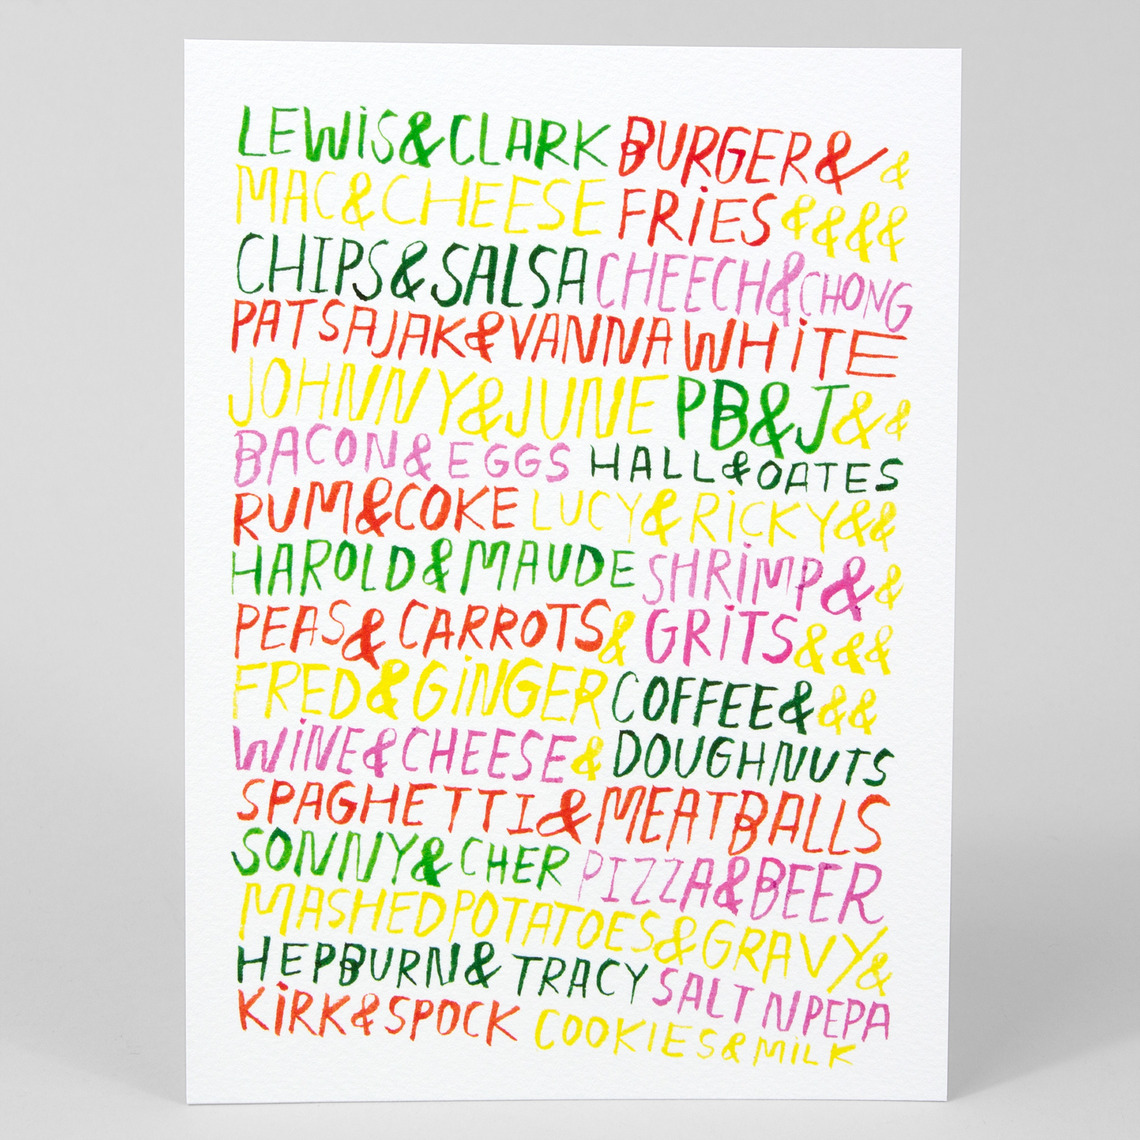 LEWIS&CLARK BURGER& &
MAC&CHEESE FRIES &&&&
CHIPS&SALSA CHEECH&CHONG
PAT SAJAK&VANNA WHITE
JOHNNY&JUNE PB&J&&
BACON& EGGS HALL&OATES
RUM&COKE LUCY& RICKY&&
HAROLD&MAUDE SHRIMP& &
PEAS& CARROTS& GRITS&&&
FRED&GINGER COFFEE&&&
WINE&CHEESE& DOUGHNUTS
SPAGHETTI&MEATBALLS
SONNY& CHER PIZZA&BEER
MASHED POTATOES&GRAVY&
HEPBURN& TRACY SALT N PEPA
KIRK&SPOCK COOKIES&MILK